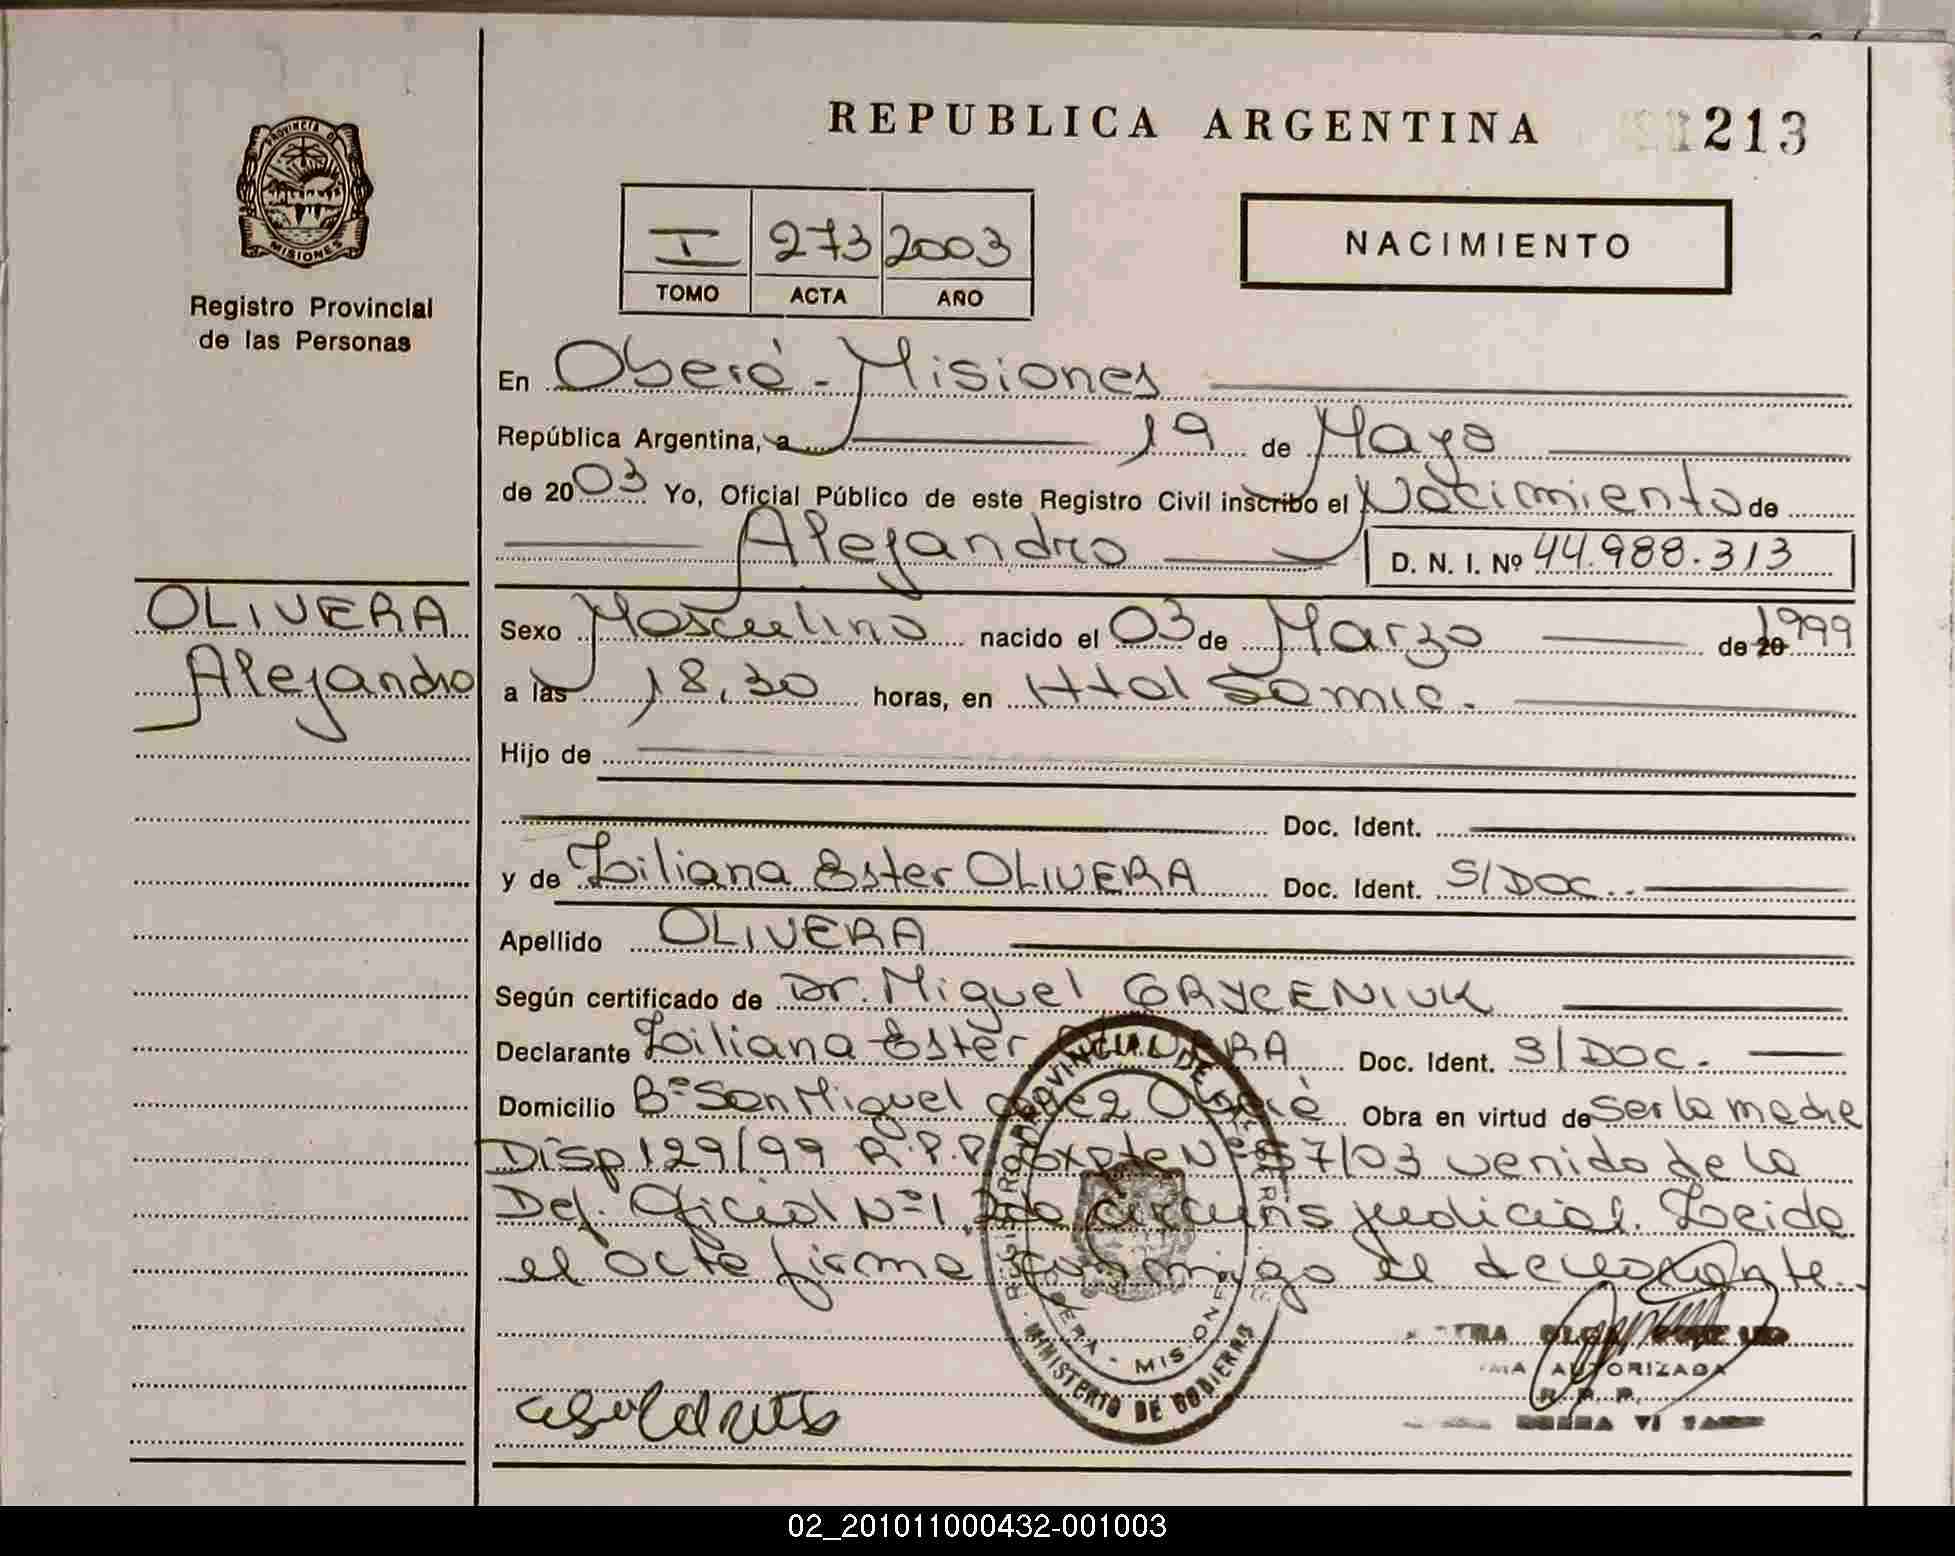 REPUBLICA ARGENTINA 213
PROVINCIA DE MISIONES
Registro Provincial
de las Personas
I 273 2003
TOMO ACTA AÑO
NACIMIENTO
En Oberá - Misiones
República Argentina, a 19 de Mayo
de 2003 Yo, Oficial Público de este Registro Civil inscribo el Nacimiento de
Alejandro D. N. I. Nº 44.988.313
OLIVERA
Alejandro
Sexo Masculino nacido el 03 de Marzo de 20 1999
a las 18,30 horas, en Htal Samic.
Hijo de
Doc. Ident.
y de Liliana Ester OLIVERA Doc. Ident. S/DOC.
Apellido OLIVERA
Según certificado de Dr. Miguel GRYCENIUK
Declarante Liliana Ester OLIVERA Doc. Ident. S/DOC.
Domicilio Bº San Miguel Oberá Obra en virtud de ser la madre
Disp 129/99 R.P.P. Expte Nº 57/03 venido de la
Def. Oficial Nº 1, 2da circuns judicial. Leida
el acta firma conmigo el declarante.
REGISTRO PROVINCIAL DE LAS PERSONAS
OBERA - MISIONES
MINISTERIO DE GOBIERNO
AUTORIZADA
R. P. P.
02_201011000432-001003